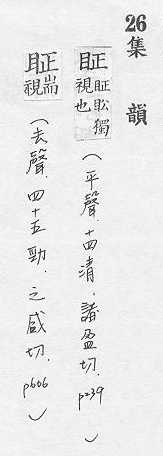 26集韻
眐 眐獨視也（平聲．十四清．諸盈切．p239）
眐 耑視（去聲．四十五勁．之盛切．p606）